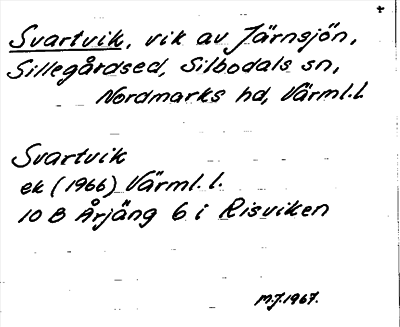 Svartvik, vik av Järnsjön,
Sillegårdsed, Silbodals sn,
Nordmarks hd, Värml.l.
Svartvik
ek (1966) Värml.l.
10 B Årjäng 6 i Risviken
M.J.1967.